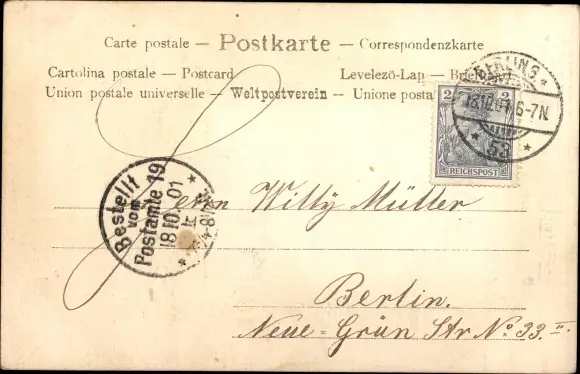 Carte postale — Postkarte — Correspondenzkarte
Cartolina postale — Postcard Levelező-Lap — Briefkaart
Union postale universelle — Weltpostverein — Unione posta
BERLIN S.
18.10.01 6-7N.
* 53 *
2 3
REICHSPOST
Bestellt
vom
Postamte 19
18.10.01
Herrn Willy Müller
Berlin.
Neue-Grün Str No. 33. II.